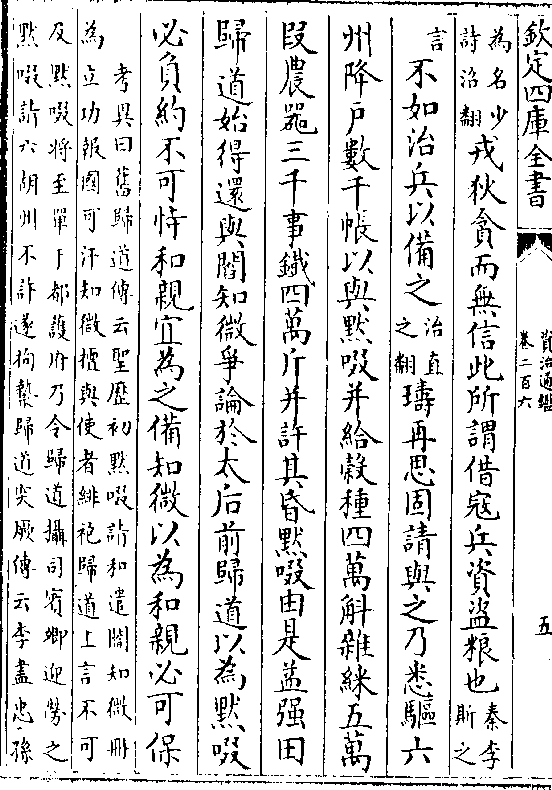 欽定四庫全書
資治通鑑
卷二百六
五
為名少
詩沼翻
戎狄貪而無信此所謂借寇兵資盜粮也
秦李
斯之
言
不如治兵以備之
治直
之翻
璹再思固請與之乃悉驅六
州降戶數千帳以與黙啜并給穀種四萬斛雜綵五萬
叚農器三千事鐡四萬斤并許其昏黙啜由是益强田
歸道始得還與閻知微爭論於太后前歸道以為黙啜
必負約不可恃和親宜為之備知微以為和親必可保
考異曰舊歸道傳云聖歴初黙啜請和遣閻知微册
為立功報國可汗知微擅與使者緋袍歸道上言不可
及黙啜將至單于都護府乃令歸道攝司賓卿迎勞之
黙啜請六胡州不許遂拘縶歸道突厥傳云李盡忠孫